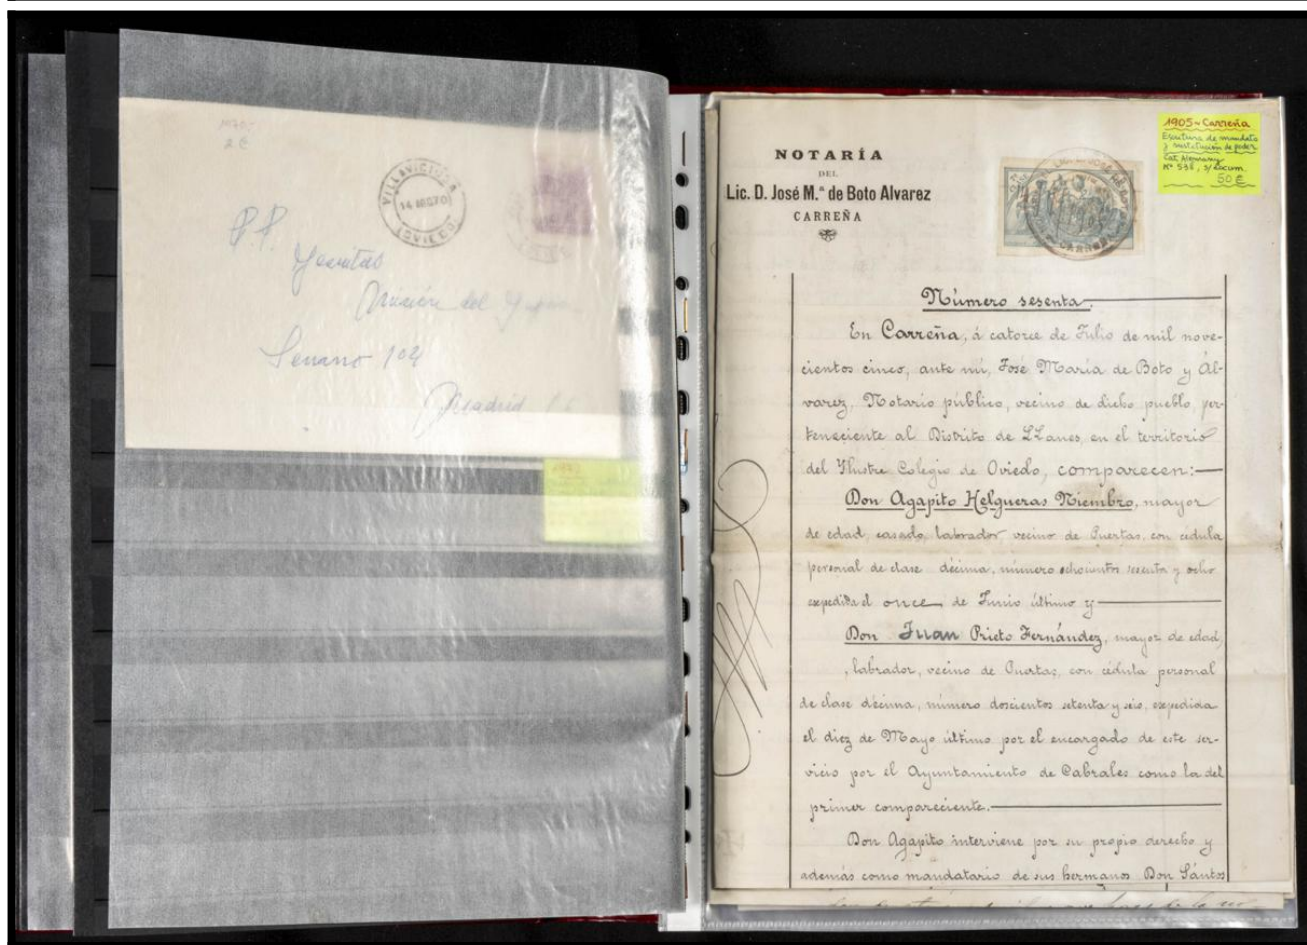 2 €
VILLAVICIOSA
14 AGO 70
(OVIEDO)
P.P. Jesuitas
Misión del
Serrano 104
Madrid
1970
NOTARÍA
DEL
Lic. D. José M.ª de Boto Alvarez
CARREÑA
CARREÑA
1905-Carreña
Escritura de mandato
y sustitución de poder
Cat. Alemany
Nº 538, s/docum.
50 €
Número sesenta.
En Carreña, á catorce de Julio de mil nove-
cientos cinco, ante mi, José María de Boto y Ál-
varez, Notario público, vecino de dicho pueblo, per-
teneciente al Distrito de LLanes, en el territorio
del Ilustre Colegio de Oviedo, comparecen:
Don Agapito Helgueras Niembro, mayor
de edad, casado, labrador vecino de Puertas, con cédula
personal de clase décima, número ochocientos sesenta y ocho
expedida el once de Junio último y
Don Juan Prieto Fernández, mayor de edad,
, labrador, vecino de Puertas, con cédula personal
de clase décima, número doscientos setenta y seis, expedida
el diez de Mayo último por el encargado de este ser-
vicio por el Ayuntamiento de Cabrales como la del
primer compareciente.
Don Agapito interviene por su propio derecho y
además como mandatario de sus hermanos Don Sántos